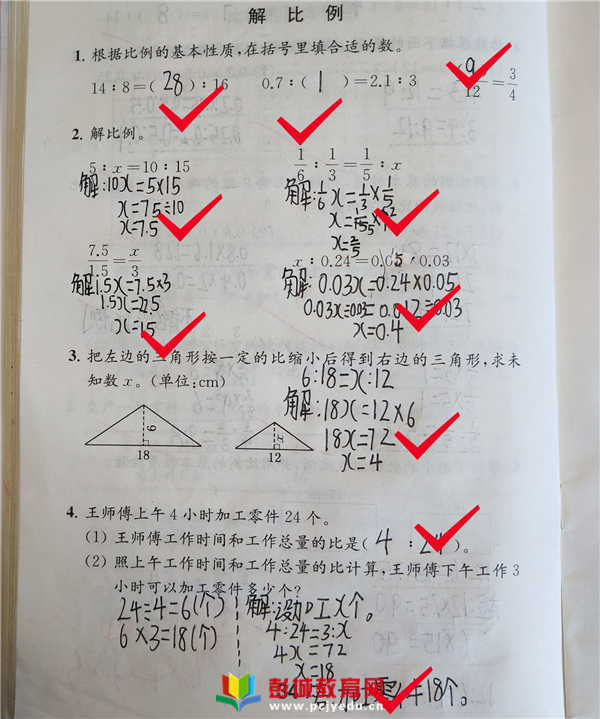 解 比 例
1. 根据比例的基本性质,在括号里填合适的数。
14∶8=(28)∶16 0.7∶(1)=2.1∶3 (9)/12=3/4
2. 解比例。
5∶x=10∶15
解:10x=5×15
x=75÷10
x=7.5
1/6∶1/3=1/5∶x
解:1/6x=1/3×1/5
x=2/5
7.5/1.5=x/3
解1.5x=7.5×3
1.5x=22.5
x=15
x∶0.24=0.05∶0.03
解:0.03x=0.24×0.05
0.03x÷0.03=0.012÷0.03
x=0.4
3. 把左边的三角形按一定的比缩小后得到右边的三角形,求未
知数 x。(单位:cm)
6:18=x:12
解:18x=12×6
18x=72
x=4
6
18
x
12
4. 王师傅上午 4 小时加工零件 24 个。
(1) 王师傅工作时间和工作总量的比是(4∶24)。
(2) 照上午工作时间和工作总量的比计算,王师傅下午工作 3
小时可以加工零件多少个?
24÷4=6(个)
6×3=18(个)
解:设加工x个。
4:24=3:x
4x=72
x=18
18个。
彭城教育网
www.pcjyedu.cn